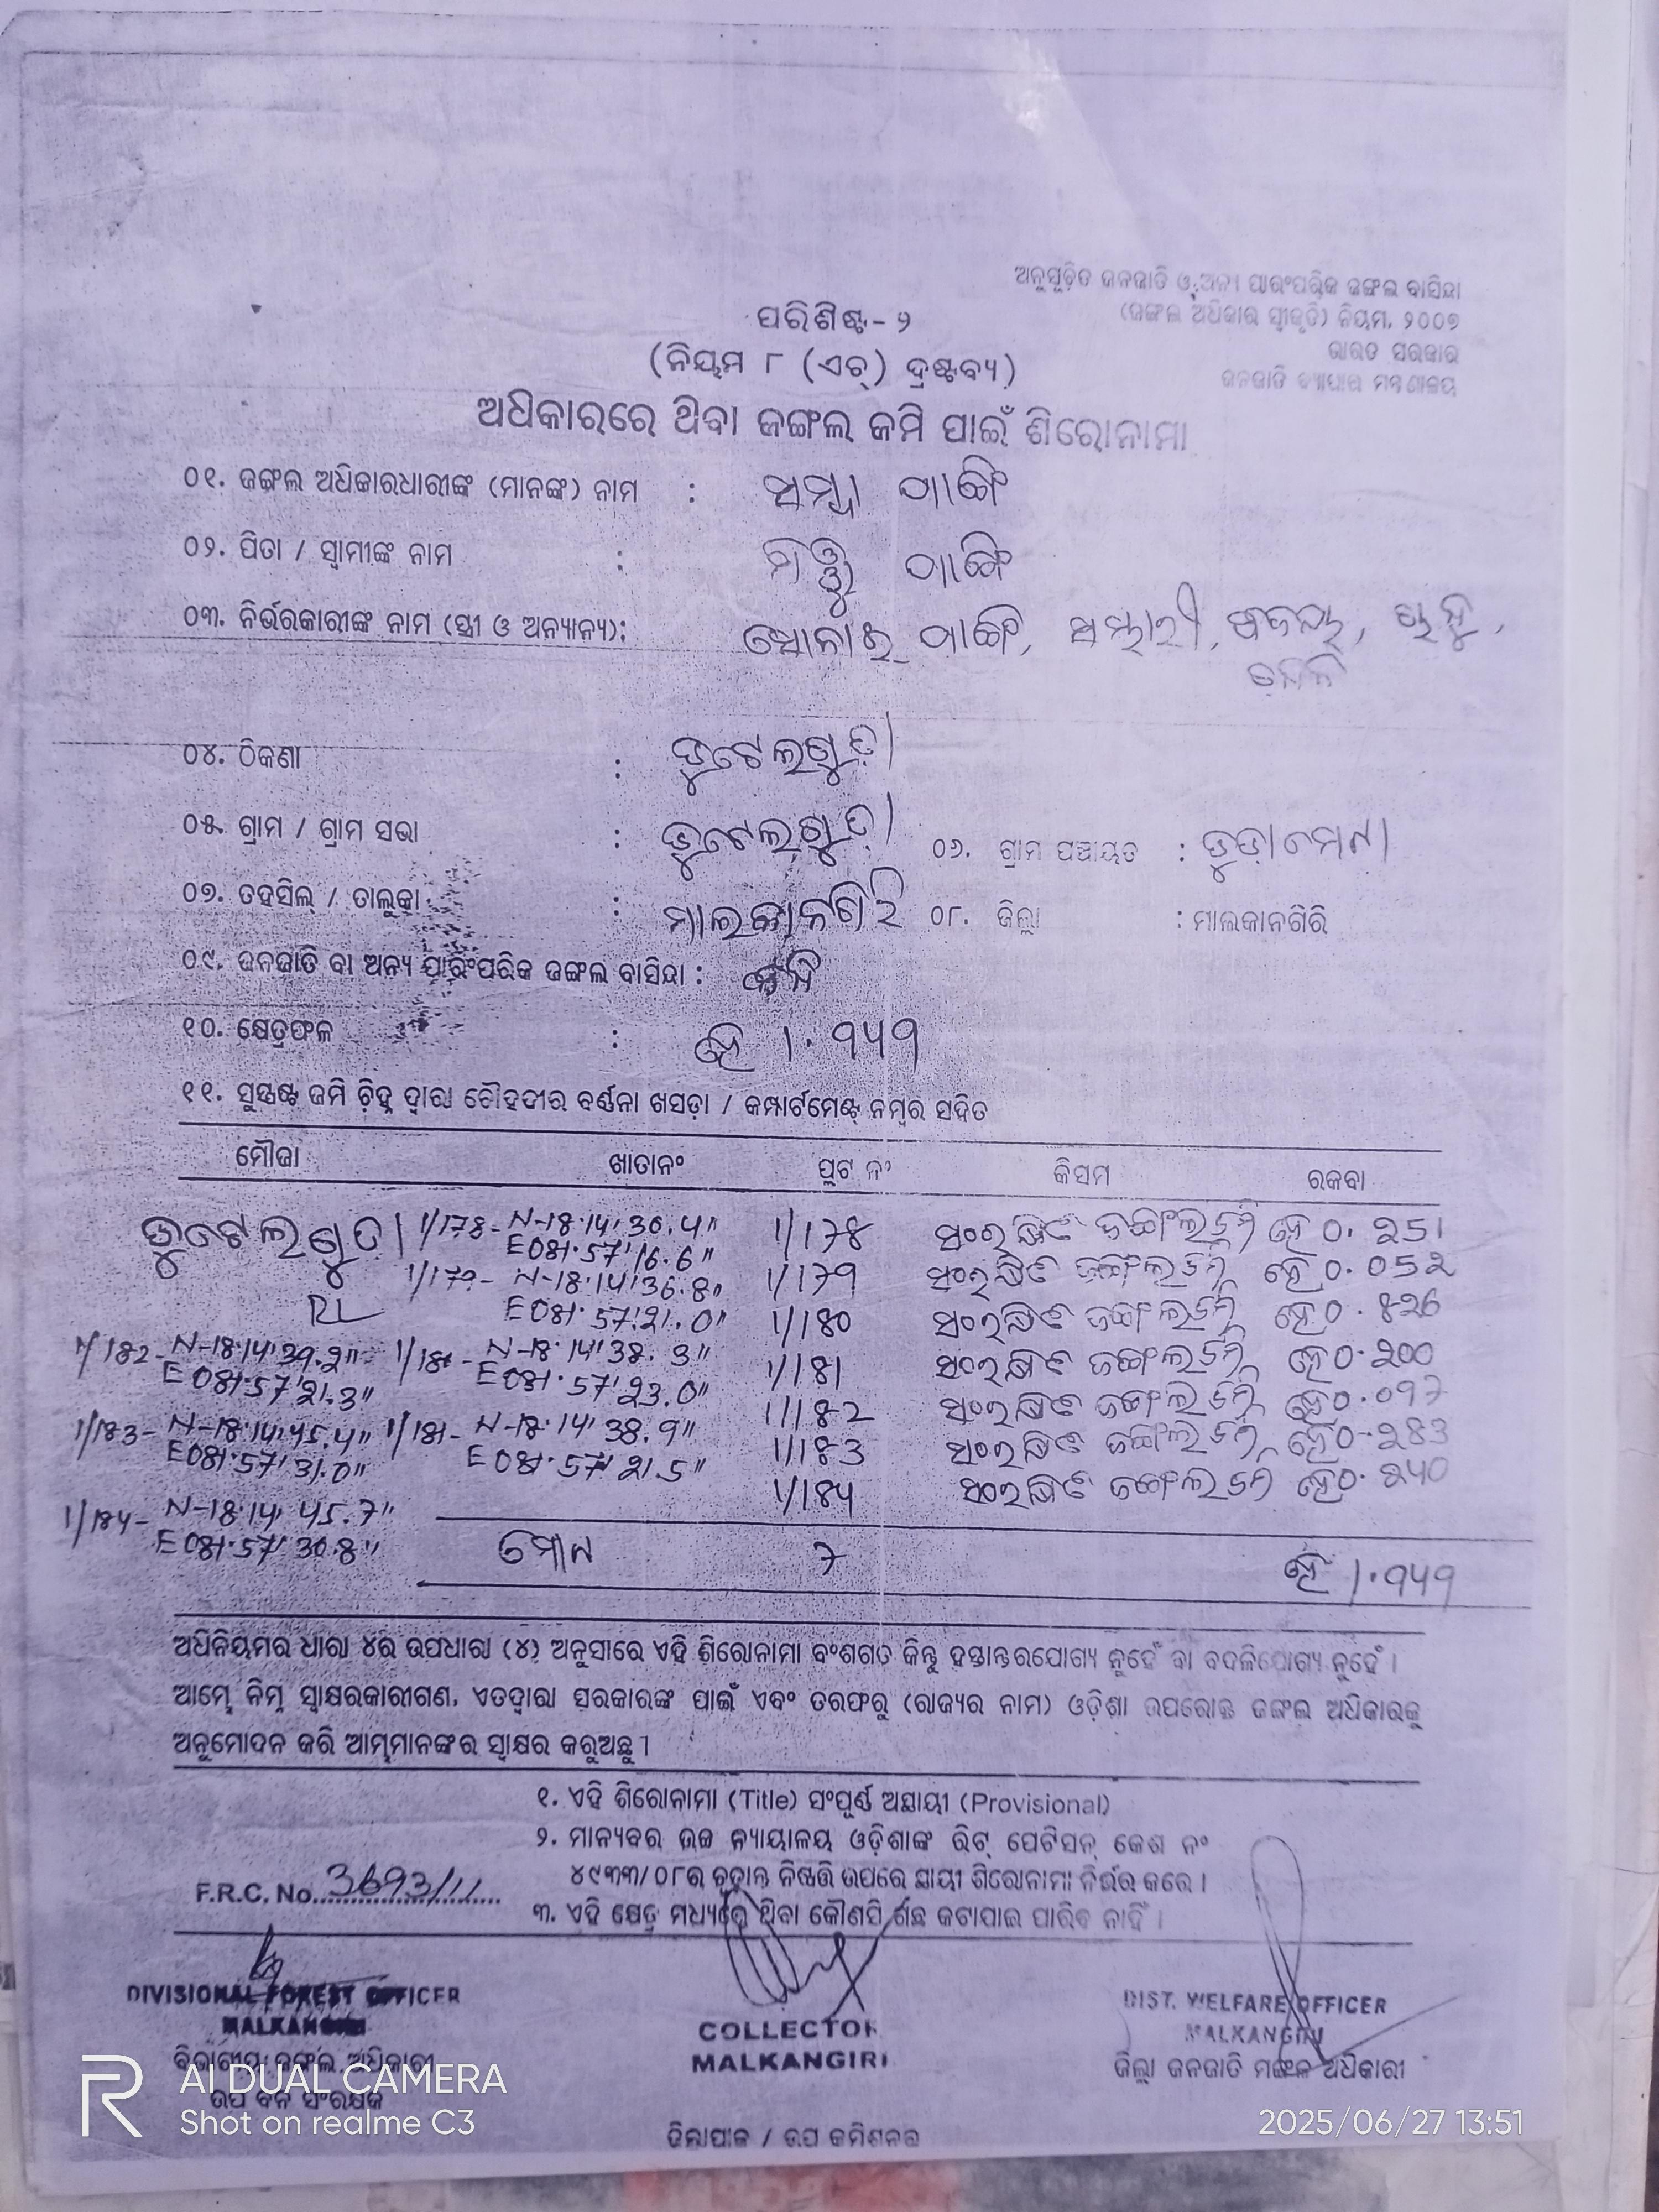 ଅନୁସୂଚିତ ଜନଜାତି ଓ ଅନ୍ୟ ପାରଂପରିକ ଜଙ୍ଗଲ ବାସିନ୍ଦା
(ଜଙ୍ଗଲ ଅଧିକାର ସ୍ୱୀକୃତି) ନିୟମ, ୨୦୦୭
ଭାରତ ସରକାର
ଜନଜାତି ବ୍ୟାପାର ମନ୍ତ୍ରଣାଳୟ
ପରିଶିଷ୍ଟ - ୨
(ନିୟମ ୮ (ଏଚ୍) ଦ୍ରଷ୍ଟବ୍ୟ)
ଅଧିକାରରେ ଥିବା ଜଙ୍ଗଲ ଜମି ପାଇଁ ଶିରୋନାମା
୦୧. ଜଙ୍ଗଲ ଅଧିକାରଧାରୀଙ୍କ (ମାନଙ୍କ) ନାମ :
୦୨. ପିତା / ସ୍ୱାମୀଙ୍କ ନାମ :
୦୩. ନିର୍ଭରକାରୀଙ୍କ ନାମ (ସ୍ତ୍ରୀ ଓ ଅନ୍ୟାନ୍ୟ):
୦୪. ଠିକଣା : ଭୁଟେଲଗୁଡା
୦୫. ଗ୍ରାମ / ଗ୍ରାମ ସଭା : ଭୁଟେଲଗୁଡା ୦୬. ଗ୍ରାମ ପଞ୍ଚାୟତ :
୦୭. ତହସିଲ୍ / ତାଲୁକା : ମାଲକାନଗିରି ୦୮. ଜିଲ୍ଲା : ମାଲକାନଗିରି
୦୯. ଜନଜାତି ବା ଅନ୍ୟ ପାରଂପରିକ ଜଙ୍ଗଲ ବାସିନ୍ଦା :
୧୦. କ୍ଷେତ୍ରଫଳ : ହେ
୧୧. ସୁସ୍ପଷ୍ଟ ଜମି ଚିହ୍ନ ଦ୍ୱାରା ଚୌହଦୀର ବର୍ଣ୍ଣନା ଖସଡ଼ା / କମ୍ପାର୍ଟମେଣ୍ଟ ନମ୍ବର ସହିତ
ମୌଜା ଖାତାନଂ ପ୍ଲଟ ନଂ କିସମ ରକବା
ଭୁଟେଲଗୁଡା 1/178- N-18°14'36.4" 1/178 ସଂରକ୍ଷିତ ଜଙ୍ଗଲ ଜମି ହେ 0.251
E081°57'16.6"
1/179- N-18°14'36.8" 1/179 ସଂରକ୍ଷିତ ଜଙ୍ଗଲ ଜମି ହେ 0.052
E081°57'21.0" 1/180 ସଂରକ୍ଷିତ ଜଙ୍ଗଲ ଜମି ହେ 0.826
1/182- N-18°14'39.2" N-18°14'38.3" 1/181 ସଂରକ୍ଷିତ ଜଙ୍ଗଲ ଜମି ହେ 0.200
E081°57'21.3" E081°57'23.0" 1/182 ସଂରକ୍ଷିତ ଜଙ୍ଗଲ ଜମି ହେ 0.097
1/183- N-18°14'45.4" 1/181- N-18°14'38.9" 1/183 ସଂରକ୍ଷିତ ଜଙ୍ଗଲ ଜମି ହେ 0.283
E081°57'31.0" E081°57'21.5" 1/184 ସଂରକ୍ଷିତ ଜଙ୍ଗଲ ଜମି ହେ
1/184- N-18°14'45.7"
E081°57'30.8" ମୋଟ 7 ହେ
ଅଧିନିୟମର ଧାରା ୪ର ଉପଧାରା (୪) ଅନୁସାରେ ଏହି ଶିରୋନାମା ବଂଶଗତ କିନ୍ତୁ ହସ୍ତାନ୍ତରଯୋଗ୍ୟ ନୁହେଁ ବା ବଦଳିଯୋଗ୍ୟ ନୁହେଁ ।
ଆମ୍ଭେ ନିମ୍ନ ସ୍ୱାକ୍ଷରକାରୀଗଣ, ଏତଦ୍ୱାରା ସରକାରଙ୍କ ପାଇଁ ଏବଂ ତରଫରୁ (ରାଜ୍ୟର ନାମ) ଓଡ଼ିଶା ଉପରୋକ୍ତ ଜଙ୍ଗଲ ଅଧିକାରକୁ
ଅନୁମୋଦନ କରି ଆମ୍ଭମାନଙ୍କର ସ୍ୱାକ୍ଷର କରୁଅଛୁ ।
୧. ଏହି ଶିରୋନାମା (Title) ସଂପୂର୍ଣ୍ଣ ଅସ୍ଥାୟୀ (Provisional)
୨. ମାନ୍ୟବର ଉଚ୍ଚ ନ୍ୟାୟାଳୟ ଓଡ଼ିଶାଙ୍କ ରିଟ୍ ପେଟିସନ୍ କେଶ ନଂ
୪୯୩୩/୦୮ର ଚୂଡ଼ାନ୍ତ ନିଷ୍ପତ୍ତି ଉପରେ ସ୍ଥାୟୀ ଶିରୋନାମା ନିର୍ଭର କରେ ।
F.R.C. No. 3693/11
୩. ଏହି କ୍ଷେତ୍ର ମଧ୍ୟରେ ଥିବା କୌଣସି ଗଛ କଟାଯାଇ ପାରିବ ନାହିଁ ।
DIVISIONAL FOREST OFFICER
MALKANGIRI
ବିଭାଗୀୟ ଜଙ୍ଗଲ ଅଧିକାରୀ
ଉପ ବନ ସଂରକ୍ଷକ
COLLECTOR
MALKANGIRI
ଜିଲ୍ଲାପାଳ / ଉପ କମିଶନର
DIST. WELFARE OFFICER
MALKANGIRI
ଜିଲ୍ଲା ଜନଜାତି ମଙ୍ଗଳ ଅଧିକାରୀ
AI DUAL CAMERA
Shot on realme C3
2025/06/27 13:51